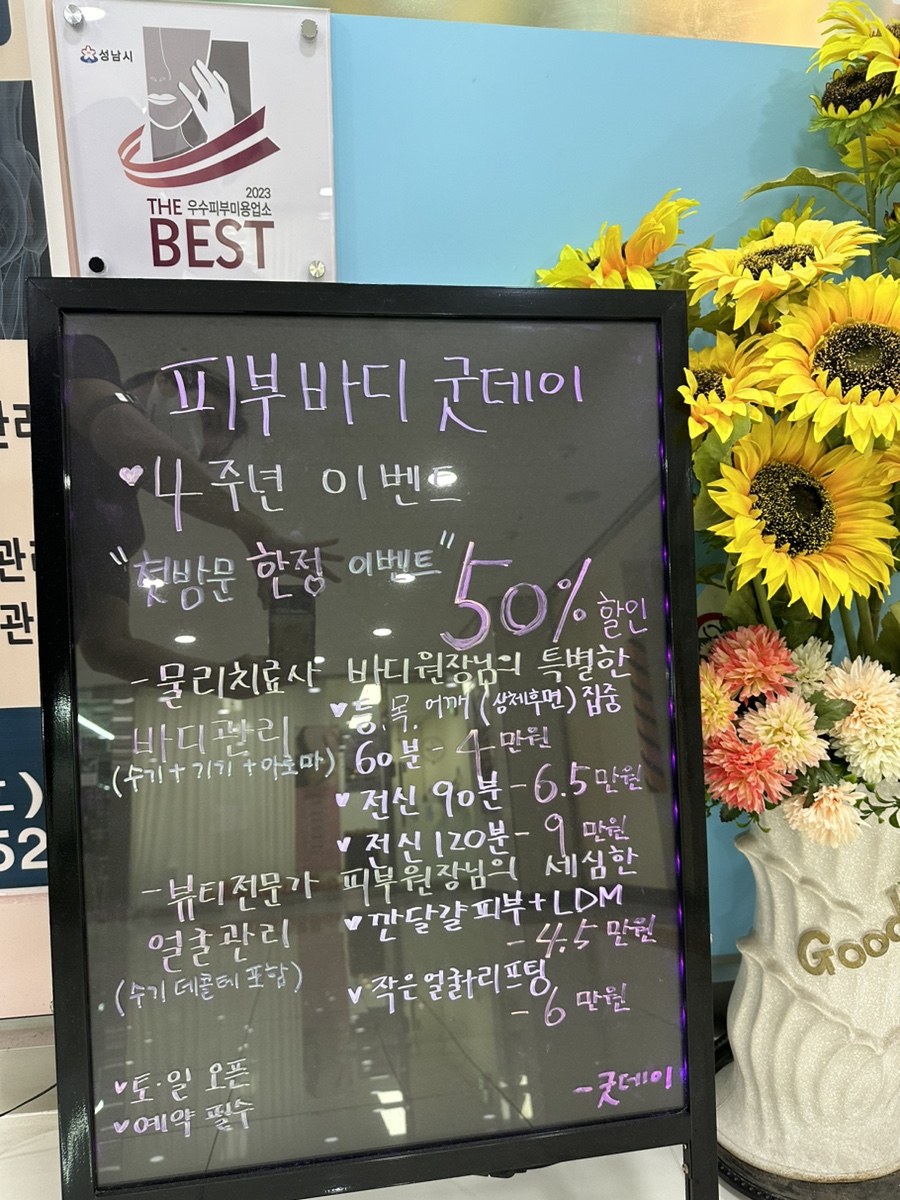 성남시
2023
THE 우수피부미용업소
BEST
피부바디 굿데이
♥4주년 이벤트
"첫방문 한정 이벤트"
50% 할인
-물리치료사 바디원장님의 특별한
바디관리
(수기+기기+아로마)
♥등.목.어깨(상체후면)집중
60분-4만원
♥전신 90분-6.5만원
♥전신120분-9만원
-뷰티전문가 피부원장님의 세심한
얼굴관리
(수기 데콜테 포함)
♥깐달걀피부+LDM
-4.5만원
♥작은얼굴+리프팅
-6만원
♥토·일 오픈
♥예약 필수
-굿데이
관
관
52
Good